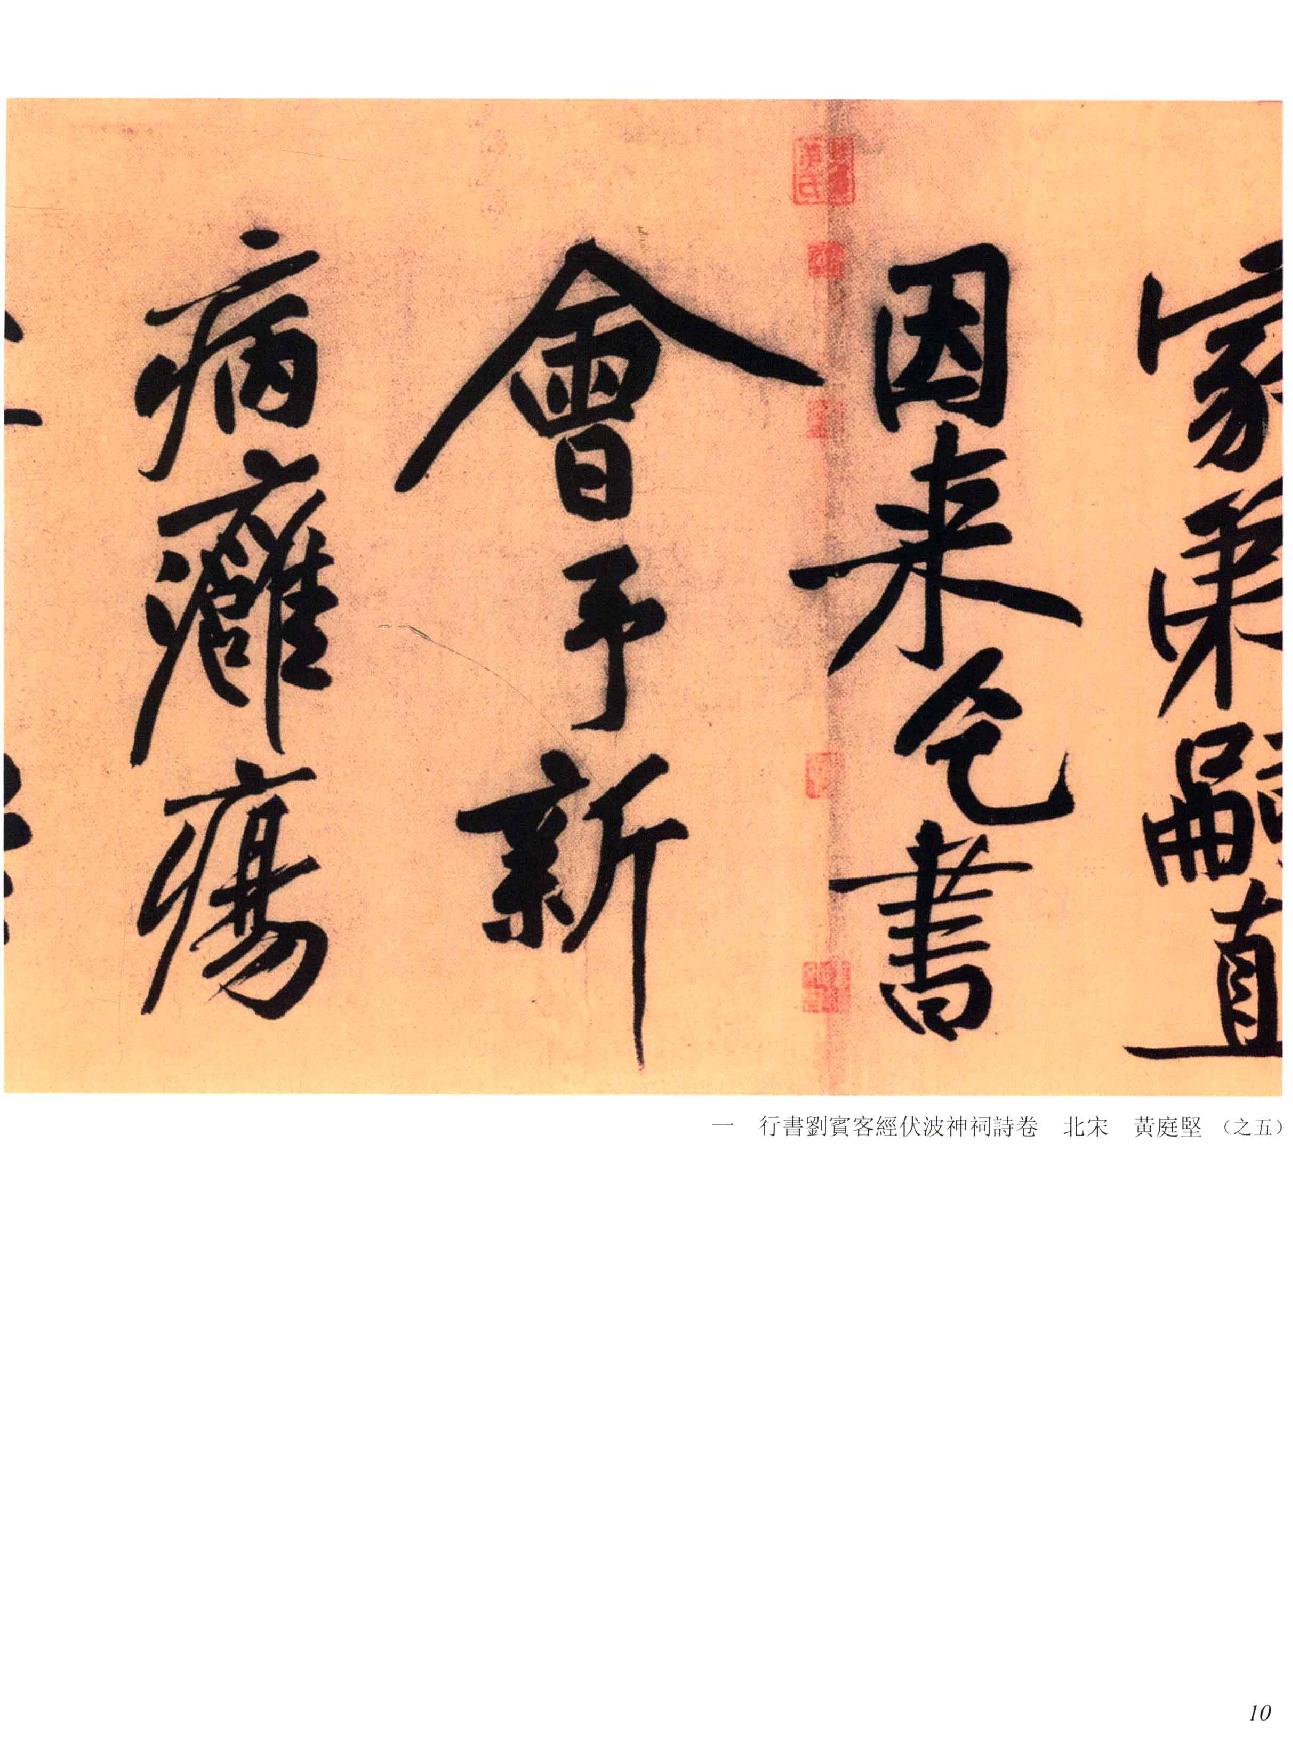 家弟嗣直
因来乞書
會予新
病癰瘍
一 行書劉賓客經伏波神祠詩卷 北宋 黃庭堅 （之五）
10